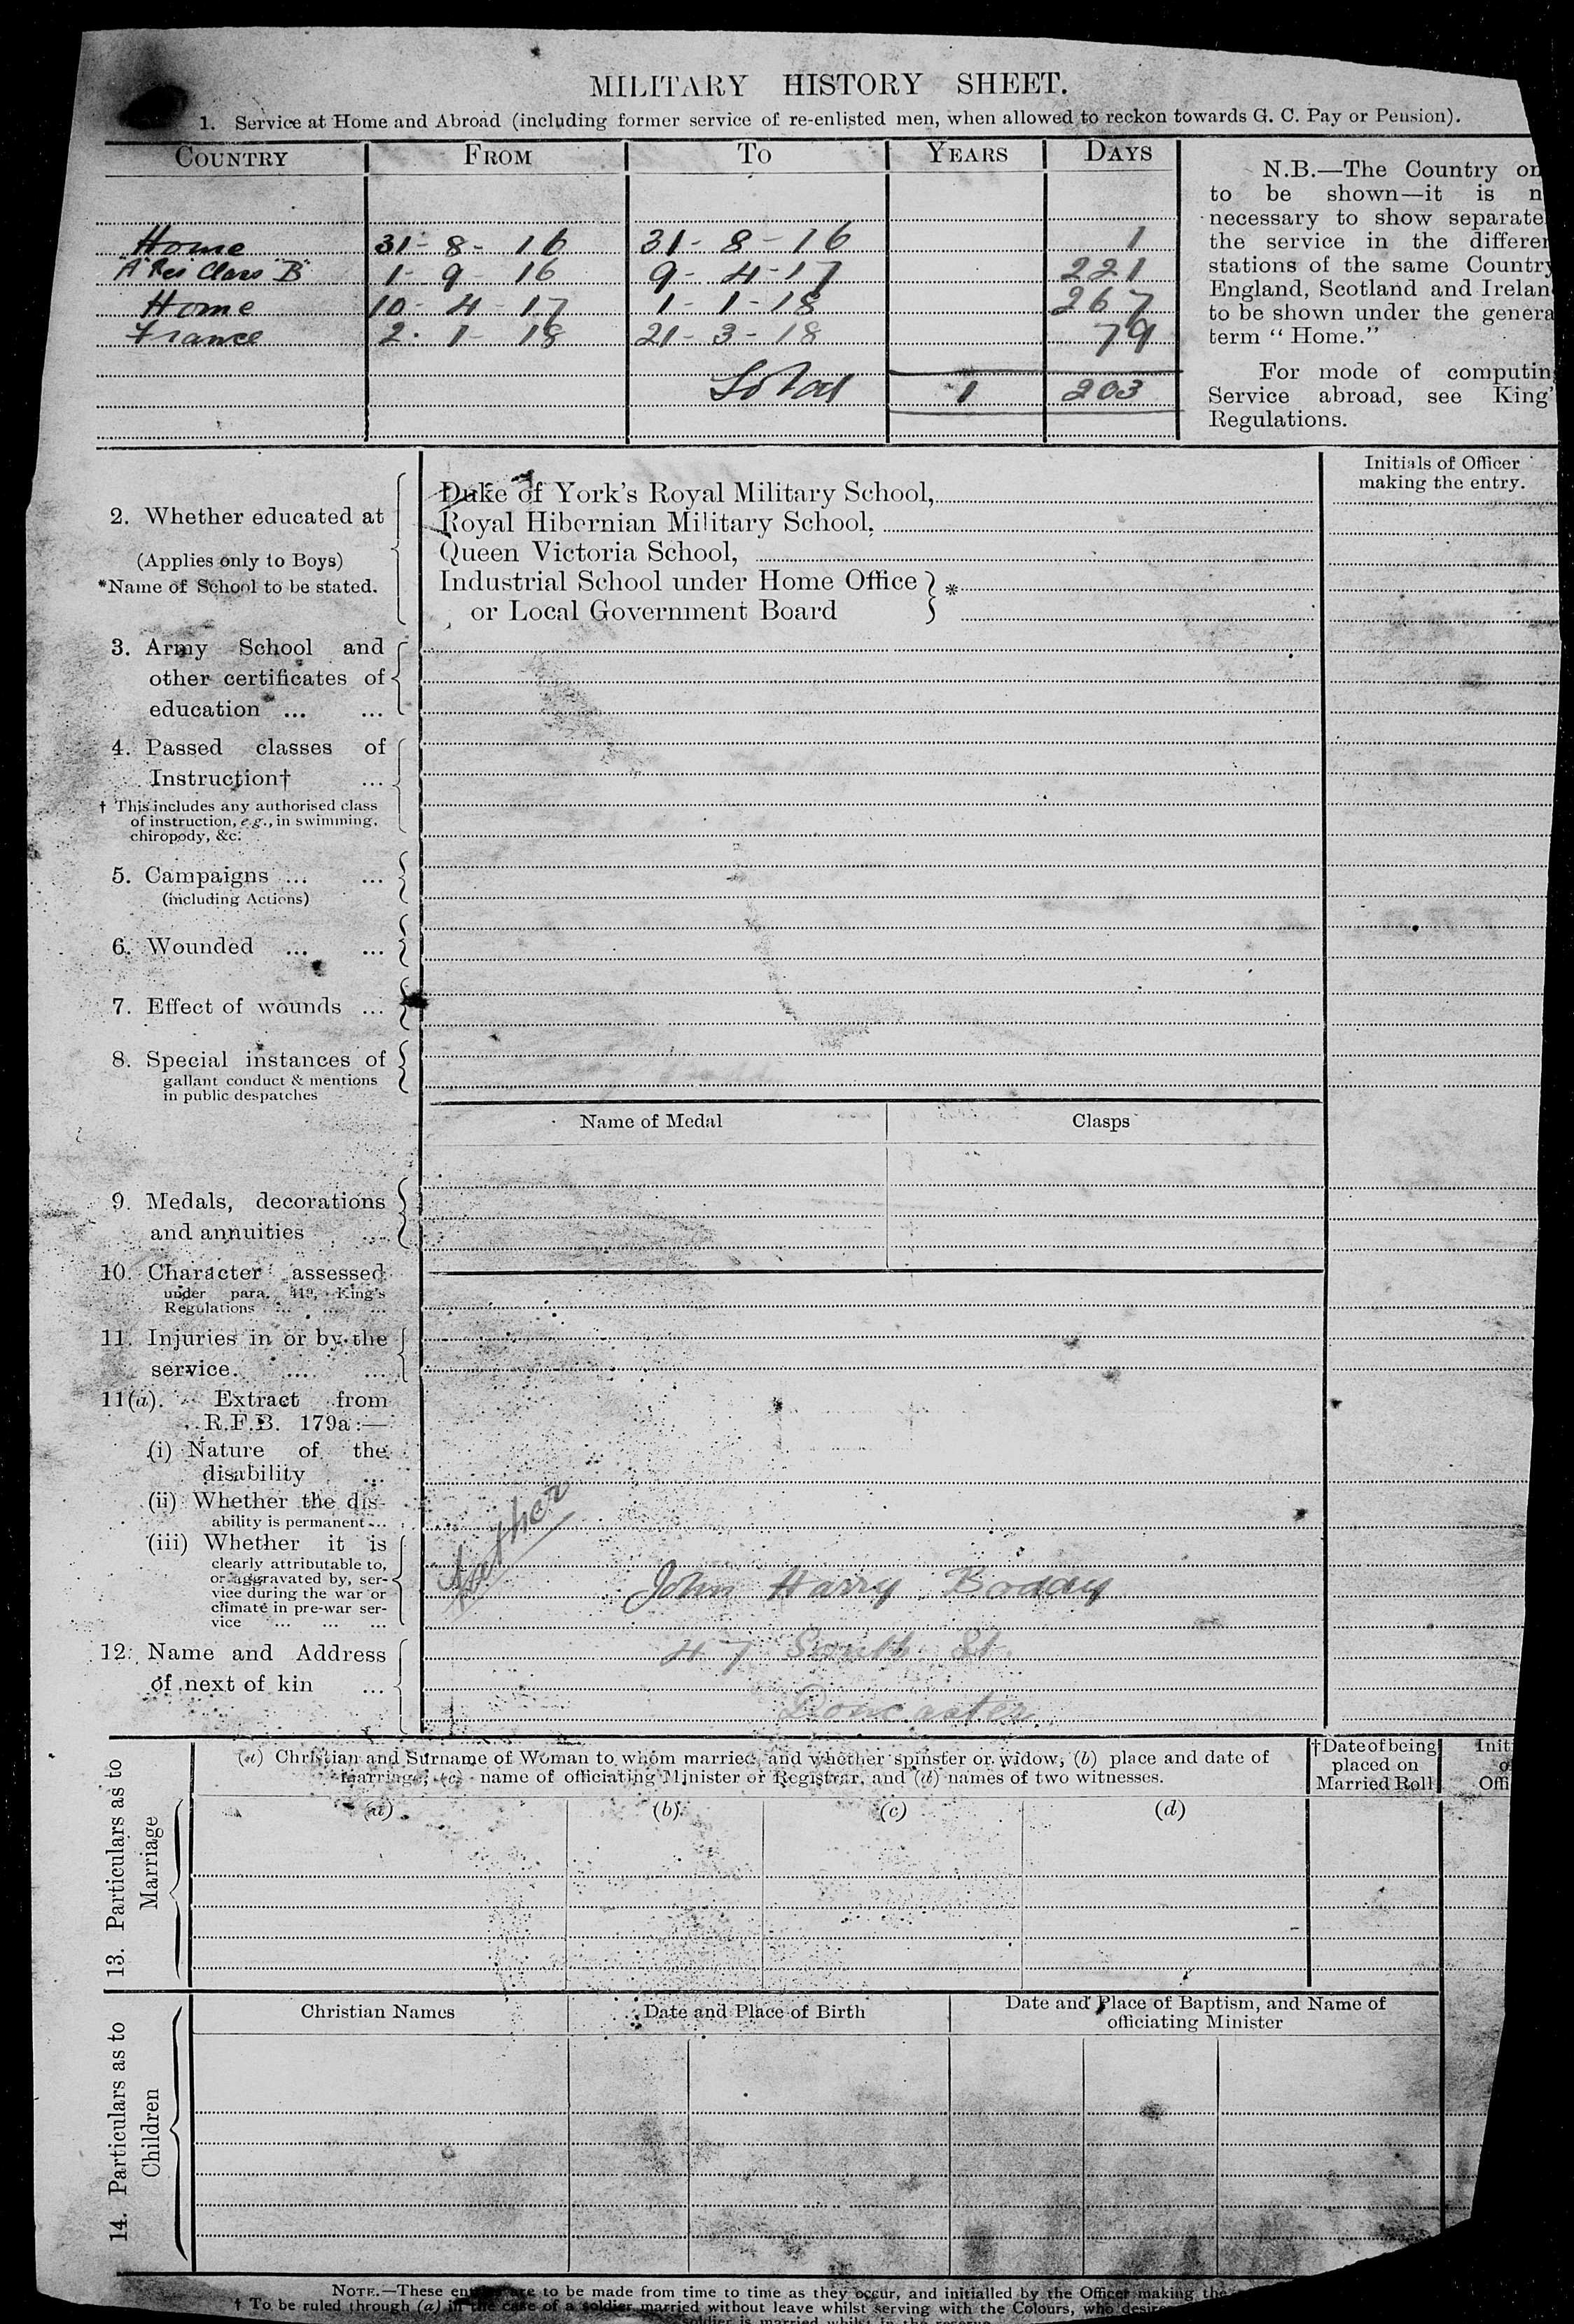 MILITARY HISTORY SHEET.
1. Service at Home and Abroad (including former service of re-enlisted men, when allowed to reckon towards G. C. Pay or Pension).
COUNTRY FROM TO YEARS DAYS
Home 31-8-16 31-8-16 1
"A" Res Class "B" 1-9-16 9-4-17 221
Home 10-4-17 1-1-18 267
France 2-1-18 21-3-18 79
Total 1 203
N.B.—The Country on
to be shown—it is n
necessary to show separate
the service in the differen
stations of the same Country
England, Scotland and Irelan
to be shown under the genera
term “ Home.”
For mode of computin
Service abroad, see King'
Regulations.
Initials of Officer
making the entry.
2. Whether educated at
(Applies only to Boys)
*Name of School to be stated.
Duke of York's Royal Military School,
Royal Hibernian Military School,
Queen Victoria School,
Industrial School under Home Office *
or Local Government Board
3. Army School and
other certificates of
education ... ...
4. Passed classes of
Instruction† ...
† This includes any authorised class
of instruction, e.g., in swimming,
chiropody, &c.
5. Campaigns ... ...
(including Actions)
6. Wounded ... ...
7. Effect of wounds ...
8. Special instances of
gallant conduct & mentions
in public despatches
Name of Medal Clasps
9. Medals, decorations
and annuities ...
10. Character assessed
under para. 419, King's
Regulations ... ... ...
11. Injuries in or by the
service. ... ...
11(a). Extract from
R.F.B. 179a:—
(i) Nature of the
disability ...
(ii) Whether the dis-
ability is permanent...
(iii) Whether it is
clearly attributable to,
or aggravated by, ser-
vice during the war or
climate in pre-war ser-
vice ... ... ...
12. Name and Address
of next of kin ...
Father
John Harry Boddy
47 South St.
Doncaster
13. Particulars as to
Marriage
(a) Christian and Surname of Woman to whom married, and whether spinster or widow, (b) place and date of
marriage, (c) name of officiating Minister or Registrar, and (d) names of two witnesses.
†Date of being
placed on
Married Roll
Initi
o
Offi
(a) (b) (c) (d)
14. Particulars as to
Children
Christian Names Date and Place of Birth Date and Place of Baptism, and Name of
officiating Minister
NOTE.—These are to be made from time to time as they occur, and initialled by the Officer making the
† To be ruled through (a) in the case of a soldier married without leave whilst serving with the Colours, who desire
soldier is married whilst in the